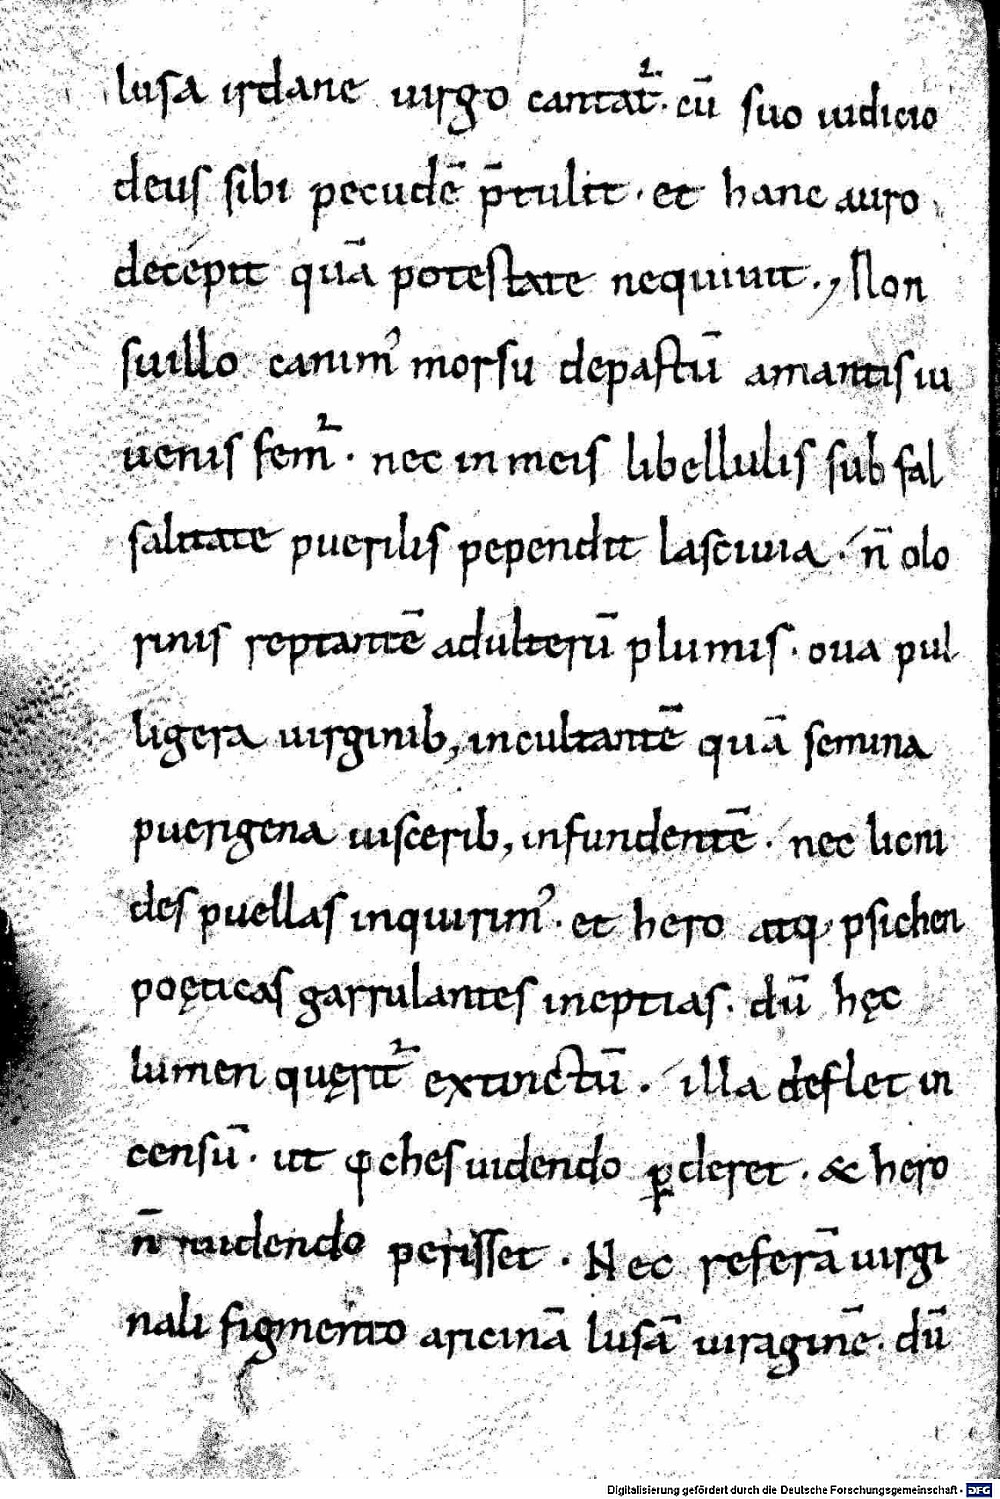 lusa irdane uirgo cantat᷑. cū suo iudicio
deus sibi pecudē p̄tulit. et hanc auro
decepit quā potestate nequiuit., Non
suillo canim᾽ morsu depastū amantis iu
uenis fem᷑. nec in meis libellulis sub fal
salitate puerilis pependit lasciuia. n̄ olo
rinis reptantē adulterū plumis. oua pul
ligera uirginib, incultantē quā semina
puerigena uiscerib, infundentē. nec licni
des puellas inquirim᾽. et hero atq, psichen
poęticas garrulantes ineptias. dū hęc
lumen quęrit᷑ extinctū. illa deflet in
censū. ut ψches uidendo ꝑderet. & hero
n̄ uidendo perisset. Nec referā uirgi
nali figmento aricinā lusā uiraginē. dū
Digitalisierung gefördert durch die Deutsche Forschungsgemeinschaft - DFG